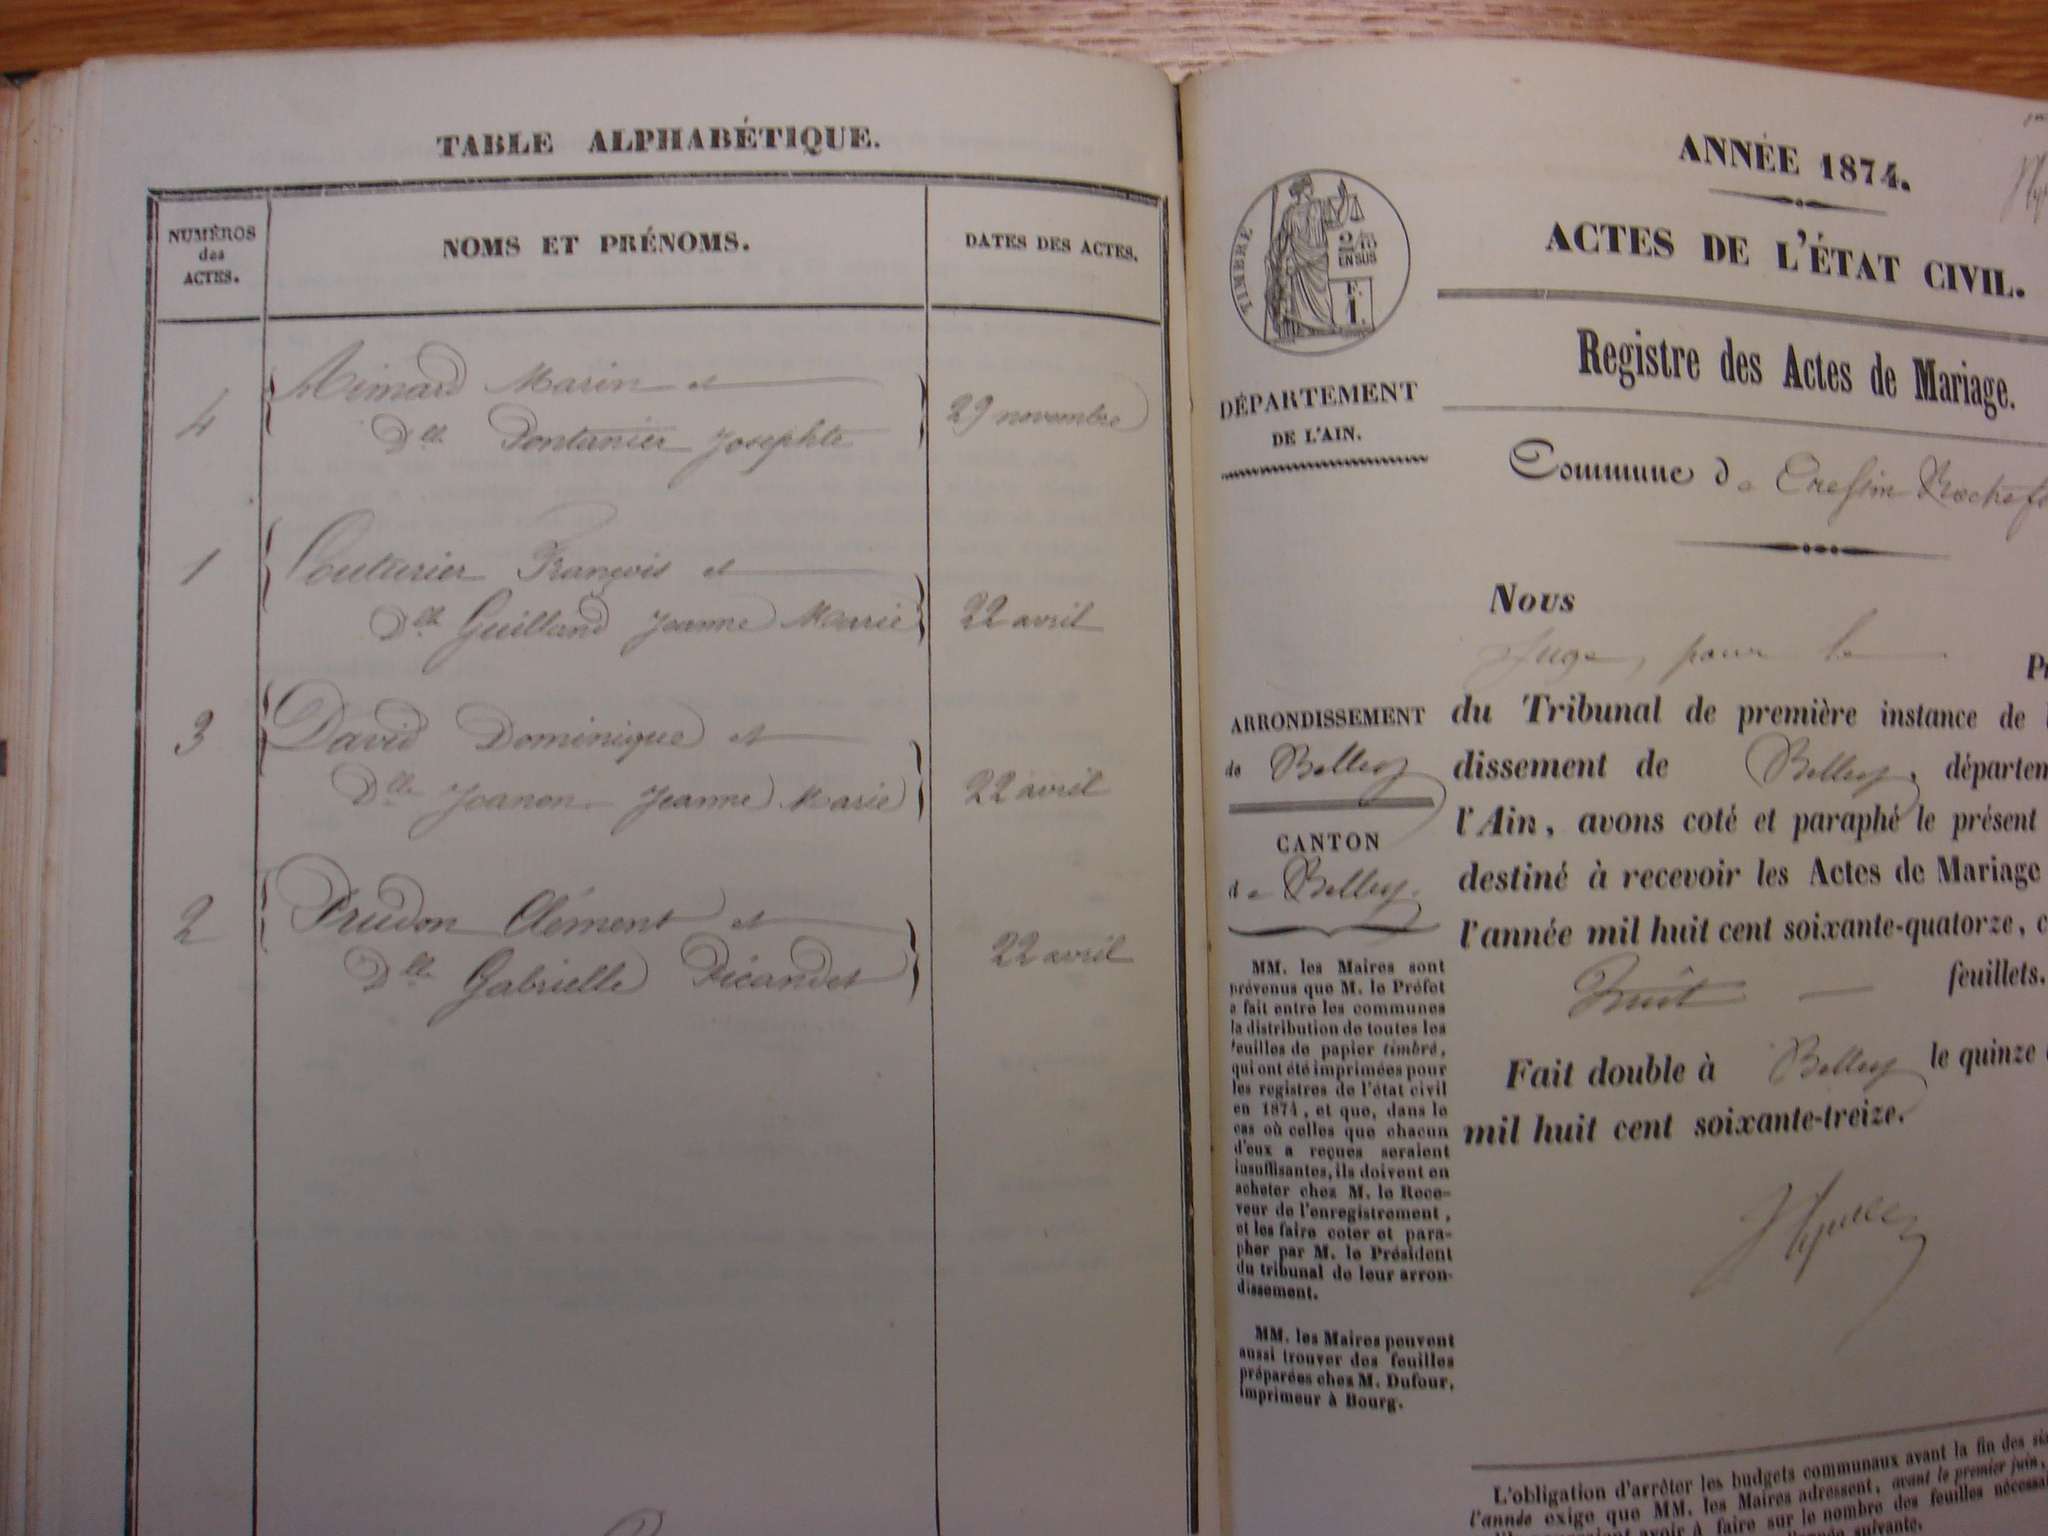 TABLE ALPHABÉTIQUE.
NUMÉROS
des
ACTES.
NOMS ET PRÉNOMS.
DATES DES ACTES.
4
Aimard Marin et
Dlle Pontanier Josephte
29 novembre
1
Couturier François et
Dlle Guilland Jeanne Marie
22 avril
3
David Dominique et
Dlle Joanon Jeanne Marie
22 avril
2
Prudon Clément et
Dlle Gabrielle Picandet
22 avril
ANNÉE 1874.
ACTES DE L'ÉTAT CIVIL.
TIMBRE
2/10
EN SUS
F.
1.
Registre des Actes de Mariage.
DÉPARTEMENT
DE L'AIN.
Commune de Cressin Rochefo
Nous
Juge, pour le
ARRONDISSEMENT
de Belley
CANTON
de Belley.
du Tribunal de première instance de
dissement de Belley, départem
l'Ain, avons coté et paraphé le présent
destiné à recevoir les Actes de Mariage
l'année mil huit cent soixante-quatorze, c
huit feuillets.
Fait double à Belley le quinze
mil huit cent soixante-treize.
MM. les Maires sont
prévenus que M. le Préfet
a fait entre les communes
la distribution de toutes les
feuilles de papier timbré,
qui ont été imprimées pour
les registres de l'état civil
en 1874, et que, dans le
cas où celles que chacun
d'eux a reçues seraient
insuffisantes, ils doivent en
acheter chez M. le Rece-
veur de l'enregistrement,
et les faire coter et para-
pher par M. le Président
du tribunal de leur arron-
dissement.
MM. les Maires peuvent
aussi trouver des feuilles
préparées chez M. Dufour,
imprimeur à Bourg.
L'obligation d'arrêter les budgets communaux avant la fin des six
l'année exige que MM. les Maires adressent, avant le premier juin,
avoir à faire sur le nombre des feuilles nécessai
l'année suivante.